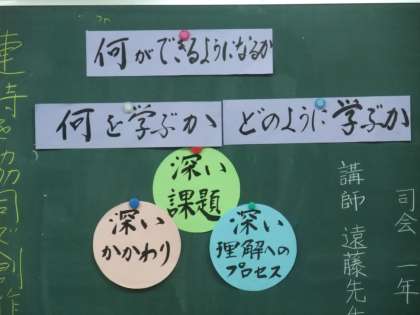 何ができるようになるか
何を学ぶか
どのように学ぶか
深い
課題
深い
かかわり
深い
理解への
プロセス
司会 一年
講師 遠藤先生
協同で創作